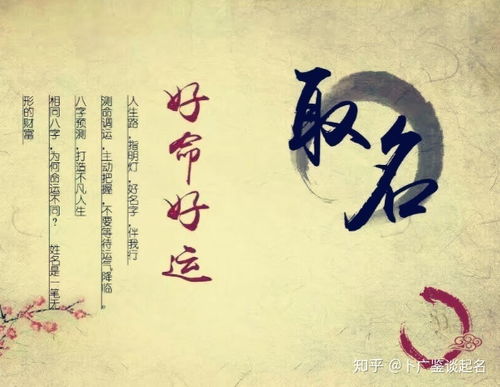 取名
好命好运
人生路，指明灯，好名字，伴我行
测命调运，主动把握，不要等待运气降临。
八字预测，打造不凡人生
相同八字，为何命运不同？ 姓名是一笔无
形的财富
知乎 @卜广鉴谈起名